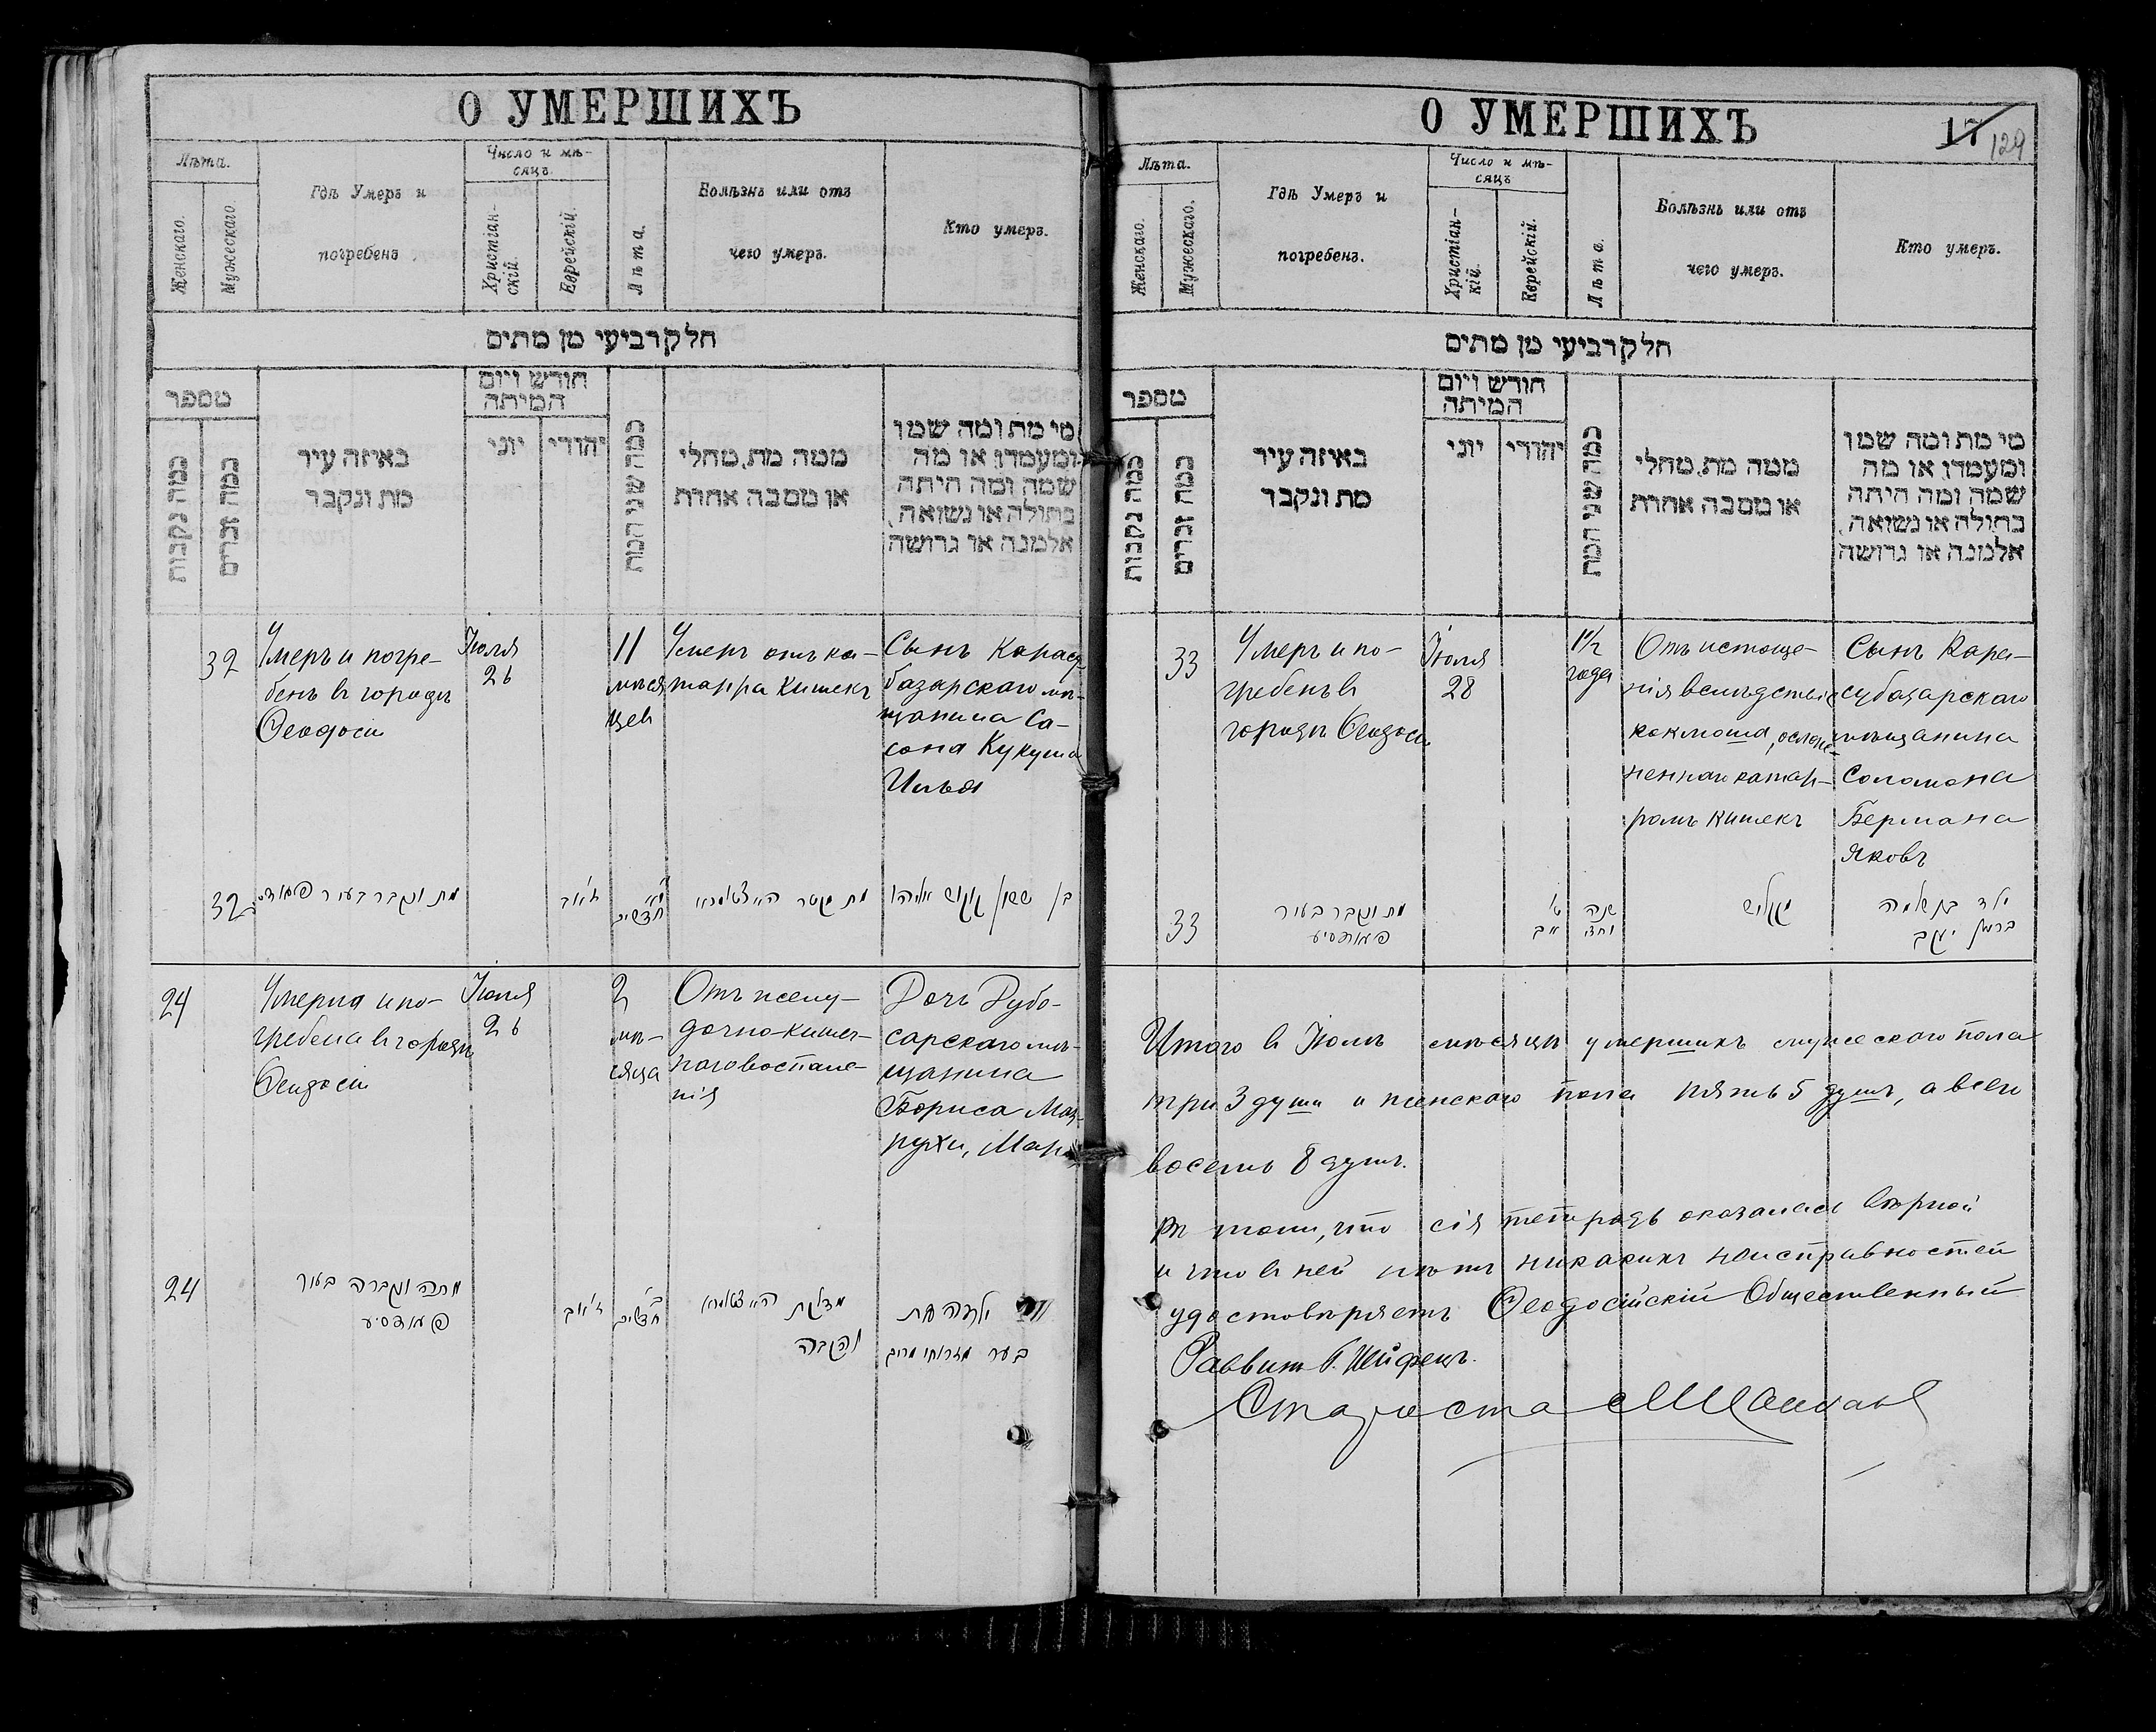 О УМЕРШИХЪ
Лѣта.
Женскаго.
Мужескаго
Гдѣ Умеръ и
погребенъ
Число и мѣ-
сяцъ.
Христіан-
скій.
Еврейскій.
Лѣта.
Болѣзнь или отъ
чего умеръ.
Кто умеръ.
חלק רביעי מן מתים
מספר
כמה נקבות
כמה זכרים
באיזה עיר
מת ונקבר
חודש ויום
המיתה
יוני
יהודי
כמה שני המת
ממה מת, מחלי
או מסבה אחרת
מי מת ומה שמו
ומעמדו, או מה
שמה ומה היתה
בתולה או נשואה,
אלמנה או גרושה
32
Умеръ и погре-
бенъ въ городѣ
Ѳеодосіи
Іюля
26
11
мѣся
цев
Умеръ отъ ка-
тарра кишекъ
Сынъ Карасу-
базарскаго мѣ-
щанина Са-
сона Кукуша
Илья
32
מת ונקבר בעיר
ז' אב
חדשים
בן ששון קוקוש אליהו
24
Умерла и по-
гребена въ городѣ
Ѳеодосіи
Іюля
26
2
мѣ-
сяца
Отъ желу-
дочно-кишеч-
наго воспале-
нія
Дочь Дубо-
сарскаго мѣ-
щанина
Бориса
24
מתה ונקברה בעיר
פעאדסיע
ז' אב
ב'
חדשים
מדלקת
והקבה
О УМЕРШИХЪ
17
129
Лѣта.
Женскаго.
Мужескаго.
Гдѣ Умеръ и
погребенъ.
Число и мѣ-
сяцъ
Христіан-
кій.
Еврейскій.
Лѣта.
Болѣзнь или отъ
чего умеръ.
Кто умеръ.
חלק רביעי מן מתים
מספר
כמה נקבות
כמה זכרים
באיזה עיר
מת ונקבר
חודש ויום
המיתה
יוני
יהודי
כמה שני המת
ממה מת, מחלי
או מסבה אחרת
מי מת ומה שמו
ומעמדו, או מה
שמה ומה היתה
בתולה או נשואה,
אלמנה או גרושה
33
Умеръ и по-
гребенъ въ
городѣ Ѳеодосіи
Іюля
28
1 1/2
года
Отъ истоще-
нія вслѣдствіе
коклюша, ослож-
неннаго катар-
ромъ кишекъ
Сынъ Кара-
субазарскаго
мѣщанина
Соломона
Бермана
Яковъ
33
מת ונקבר בעיר
פעאדסיע
ט'
אב
שנה
וחצי
ילד בן שלמה
ברמן יעקב
Итого въ Іюлѣ мѣсяцѣ умершихъ мужескаго пола
три 3 души и женскаго пола пять 5 душъ, а всего
восемь 8 душъ.
Въ томъ, что сія тетрадь оказалась вѣрной
и что въ ней нѣтъ никакихъ неисправностей
удостовѣряетъ Ѳеодосійскій Общественный
Раввинъ
Староста